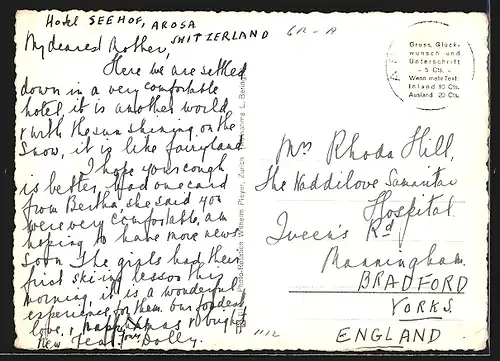 Hotel SEEHOF, AROSA
SWITZERLAND
GR-A
My dearest Mother,
Here we are settled
down in a very comfortable
hotel, it is another world
& with the sun shining on the
snow, it is like fairyland.
I hope your cough
is better, had one card
from Bertha she said you
were very comfortable, am
hoping to have more news
soon. The girls had their
first skiing lesson this
morning, it is a wonderful
experience for them. Our fondest
love, & happy Xmas & bright
New Year. Dolly.
Photo-Kunstkin Wilhelm Pleyer, Zurich
Gruss, Glück-
wunsch und
Unterschrift
- 5 Cts. -
Wenn mehr Text:
Inland 10 Cts.
Ausland 20 Cts.
Mrs Rhoda Hill,
The Waddilove Samaritan
Hospital
Queen's Rd
Manningham.
BRADFORD
YORKS.
ENGLAND